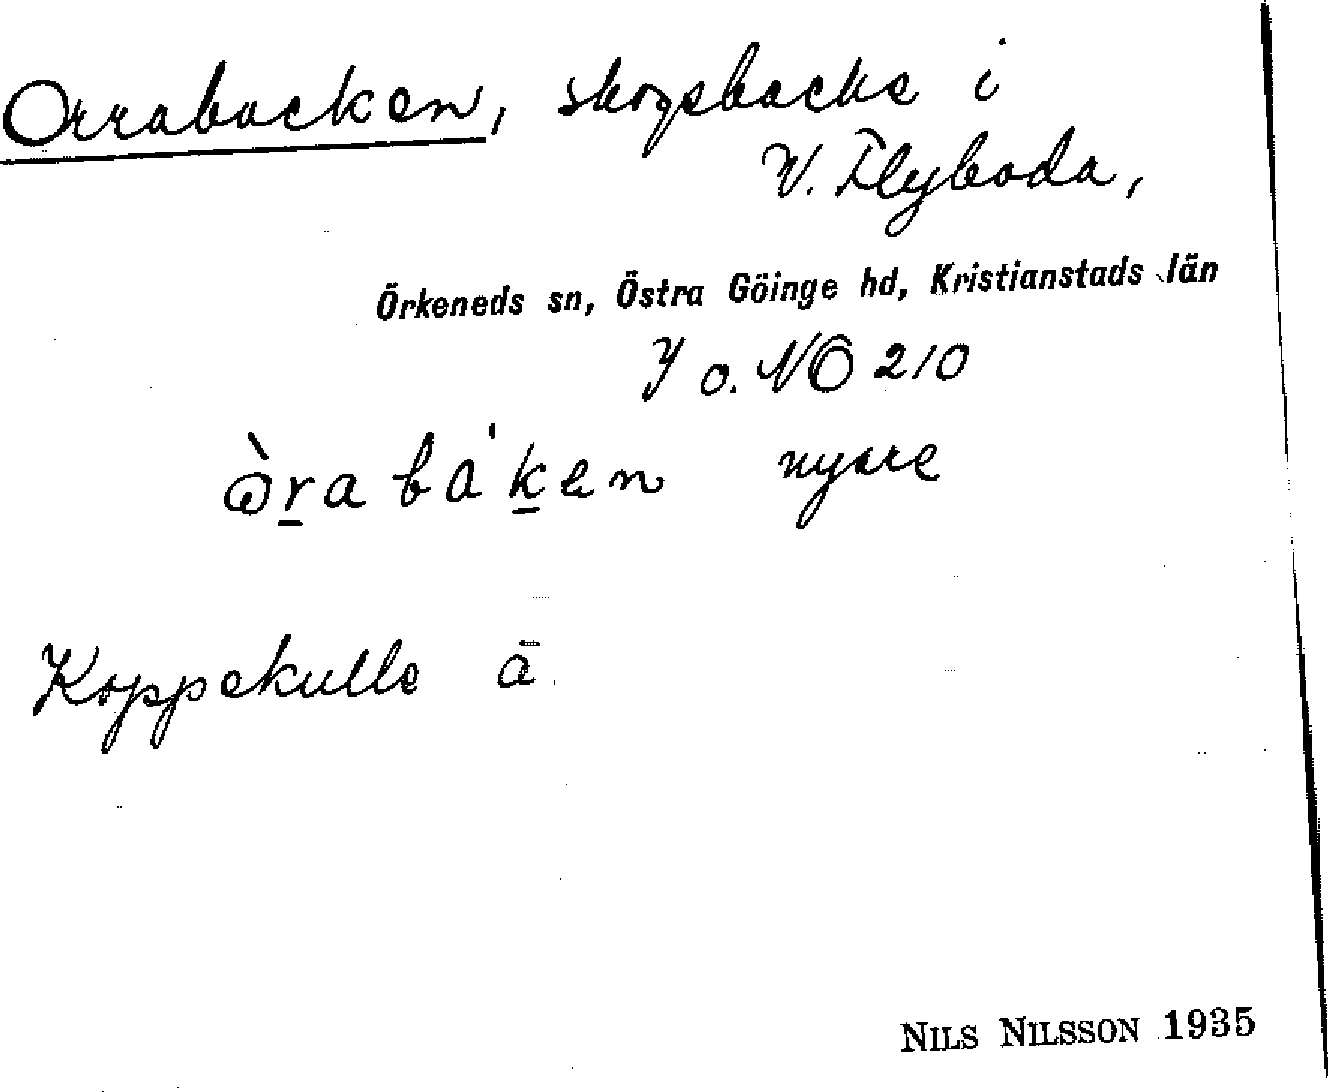 Orrabacken, skogsbacke i
V. Flyboda,
Örkeneds sn, Östra Göinge hd, Kristianstads län
Y o. NÖ 210
òra ba'ken nyare
Koppekulle ā
NILS NILSSON 1935